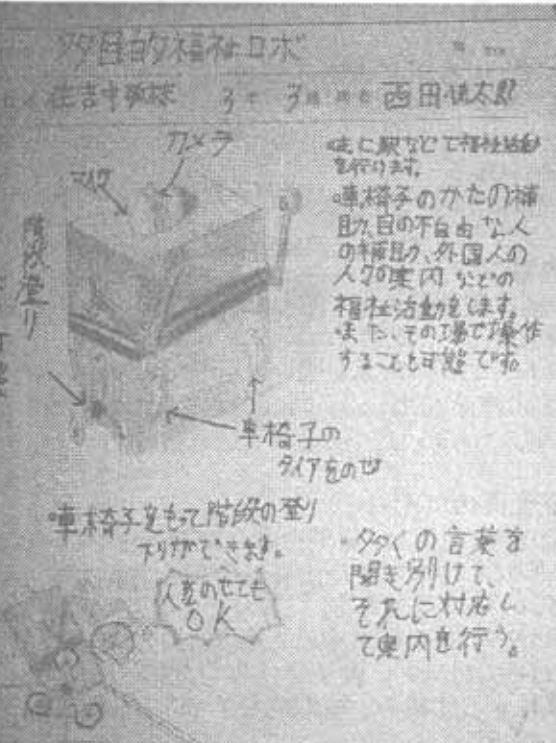 多目的福祉ロボ
住吉中学校 3年 3組 西田 太郎
カメラ
マイク
階段登り
・主に駅などで福祉活動
を行います。
・車椅子のかたの補
助、目の不自由な人
の補助、外国人の
人々の案内などの
福祉活動をします。
・また、その場で操作
することも可能です。
車椅子の
タイアをのせ
・車椅子をもって階段の登り
下りができます。
人をのせても
OK
・多くの言葉を
聞き分けて、
それに対応し
て案内を行う。